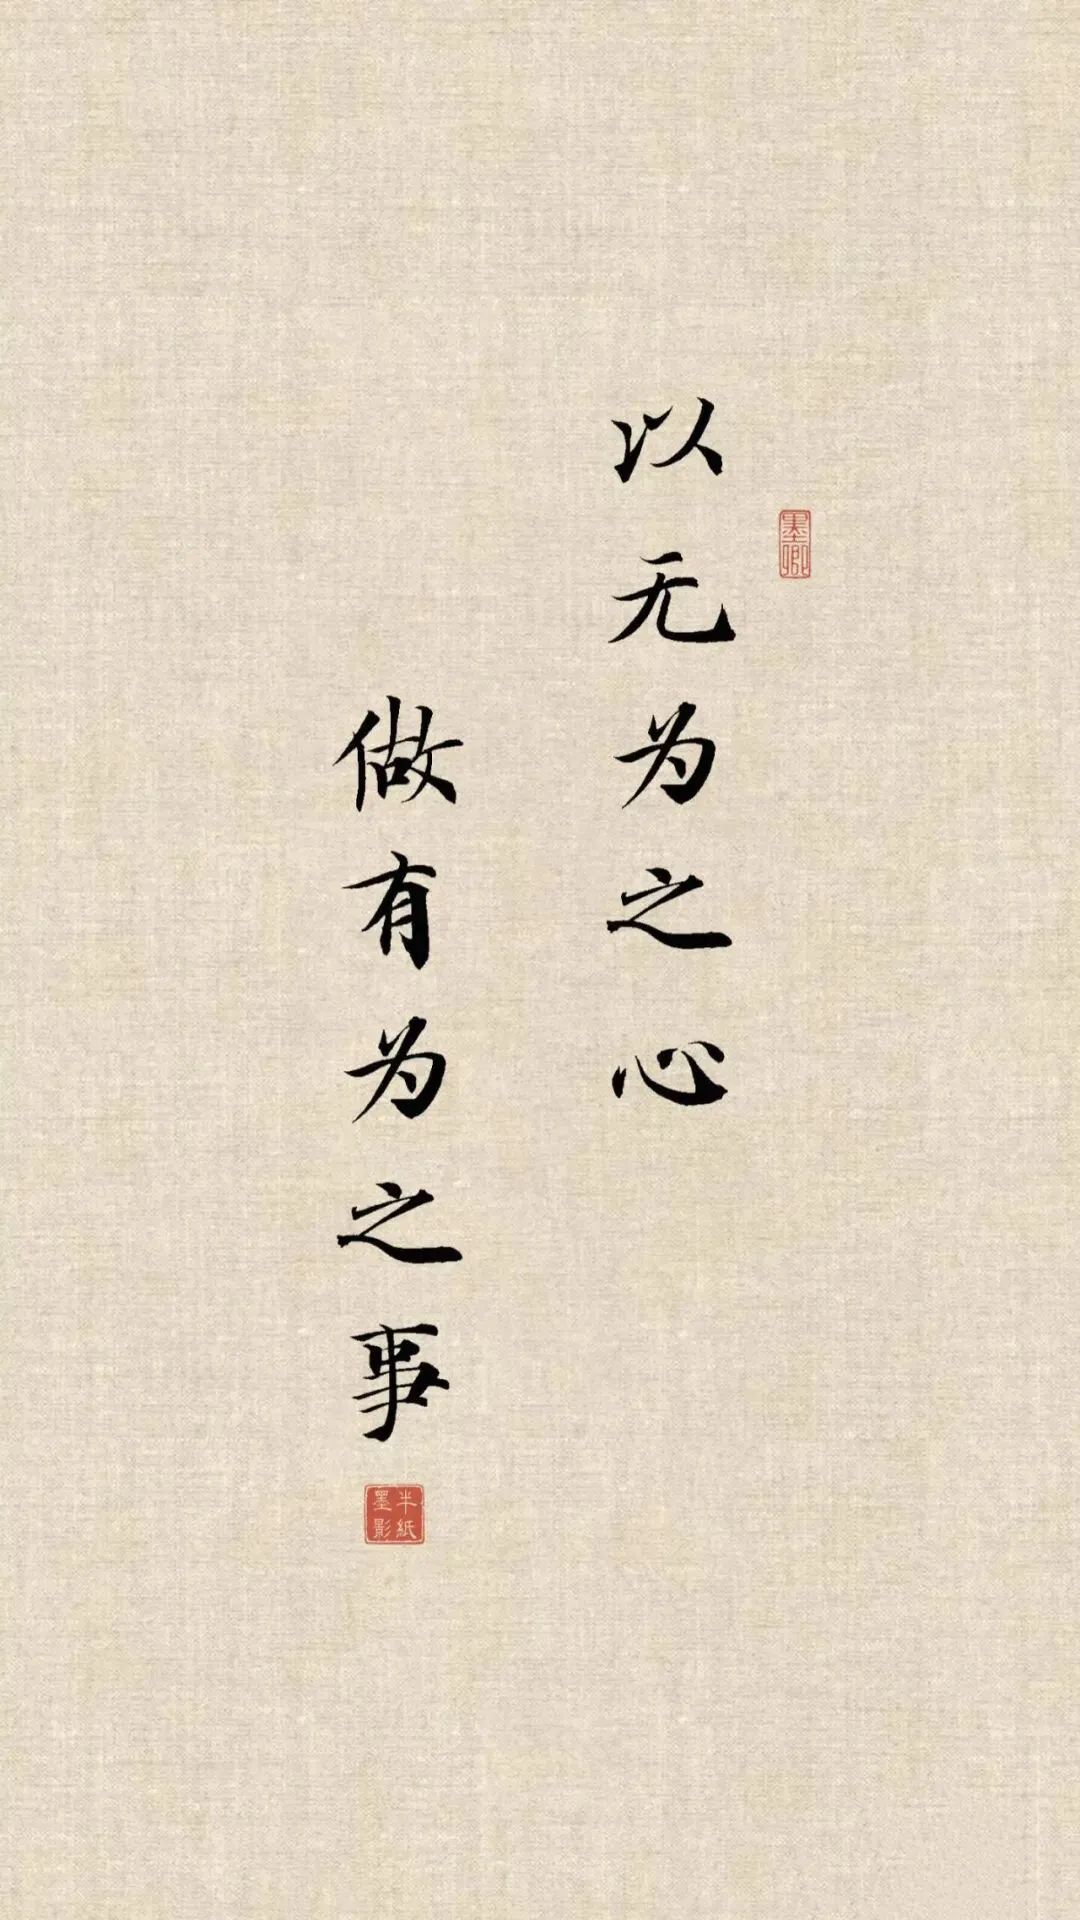 以无为之心
墨卿
做有为之事
半紙
墨影